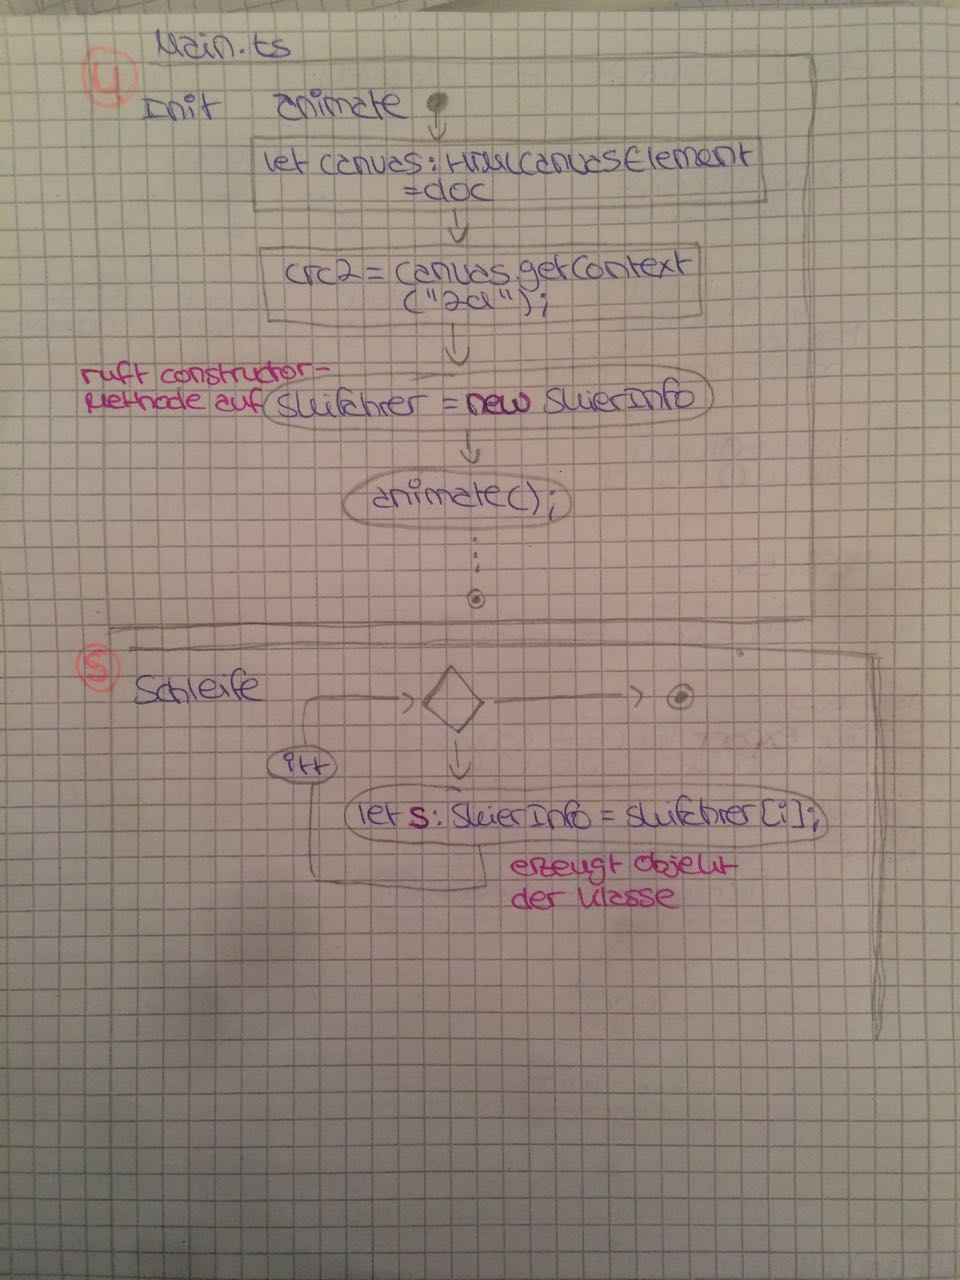 Main.ts
4
Init animate
let canvas: HTMLCanvasElement
=doc
crc2 = canvas.getContext
("2d");
ruft constructor-
Methode auf skifahrer = new SkierInfo
animate();
5
Schleife
i++
let s: SkierInfo = skifahrer[i];
erzeugt Objekt
der Klasse